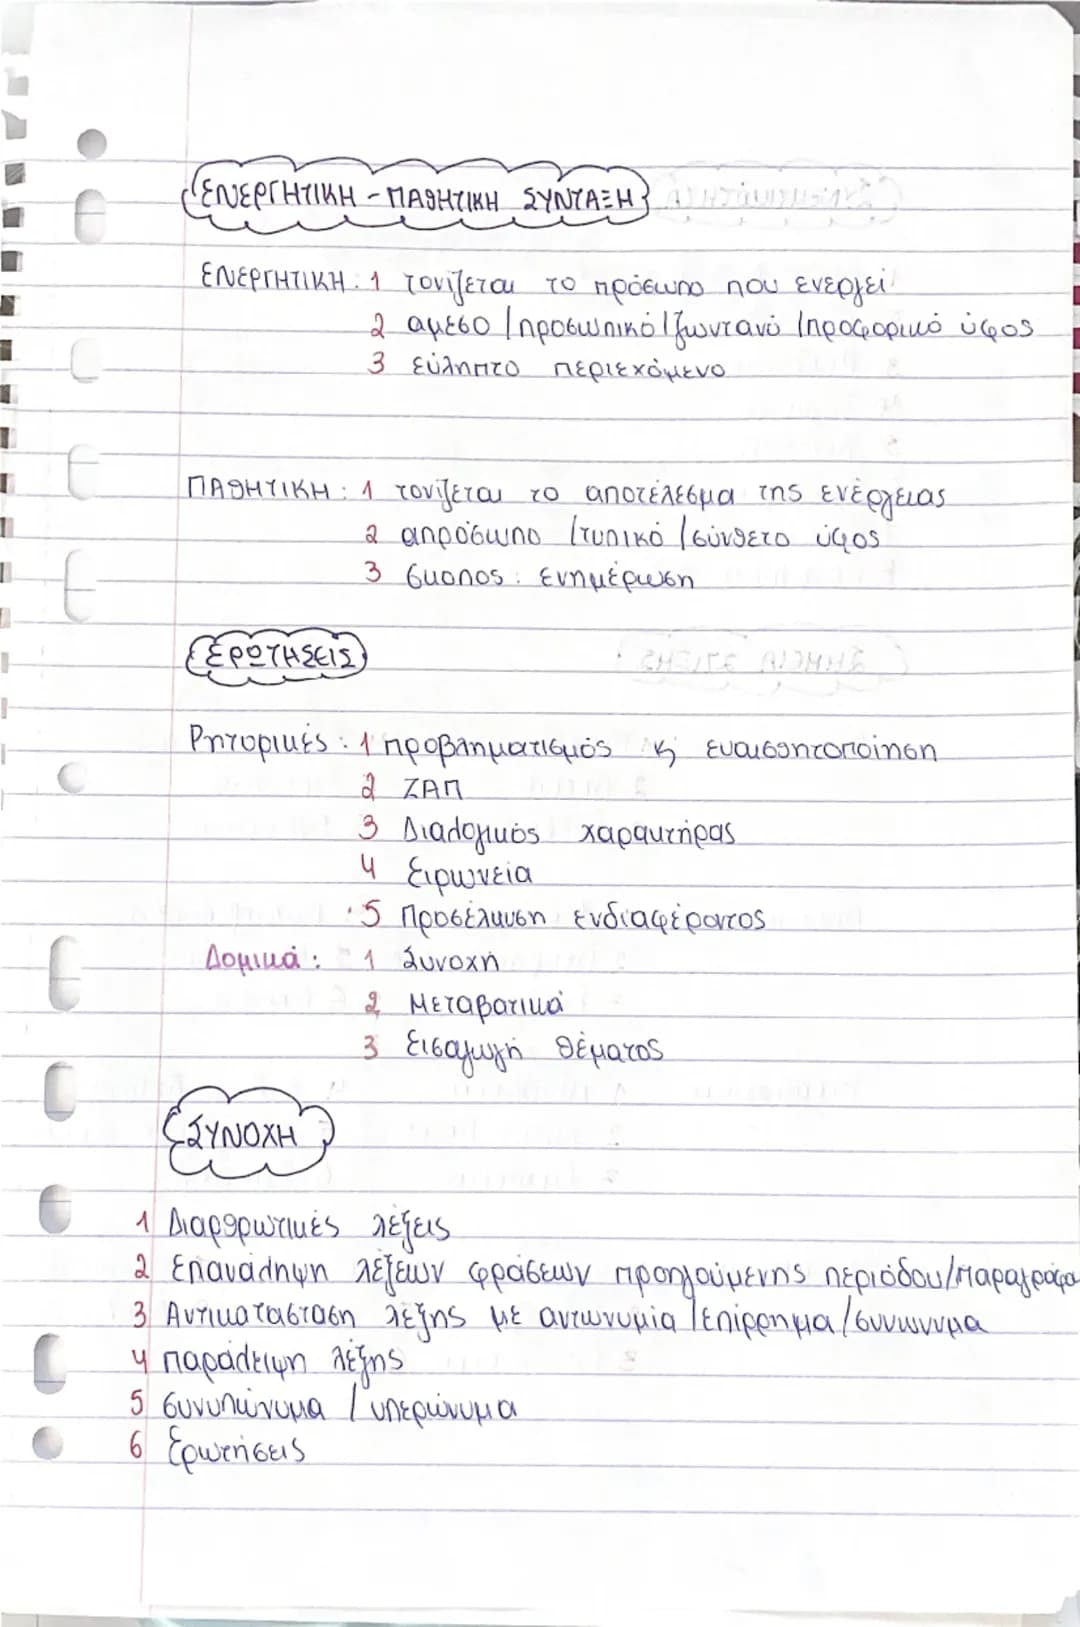 ΕΝΕΡΓΗΤΙΚΗ - ΠΑΘΗΤΙΚΗ ΣΥΝΤΑΞΗ
ΕΝΕΡΓΗΤΙΚΗ: 1 τονίζεται το πρόσωπο που ενεργεί
2 αμεσο / προσωπικό / ζωντανό / προφορικό ύφος
3 εύληπτο περιεχόμενο
ΠΑΘΗΤΙΚΗ: 1 τονίζεται το αποτέλεσμα της ενέργειας
2 απρόσωπο / τυπικό / σύνθετο ύφος
3 σκοπος: ενημέρωση
ΕΡΩΤΗΣΕΙΣ
Ρητορικές: 1 προβληματισμός κ ευαισθητοποίηση
2 ΖΑΠ
3 Διαλογικός χαρακτήρας
4 Ειρωνεία
5 Προσέλκυση ενδιαφέροντος
Δομικά: 1 Συνοχή
2 Μεταβατικά
3 Εισαγωγή θέματος
ΣΥΝΟΧΗ
1 Διαρθρωτικές λέξεις
2 Επανάληψη λέξεων φράσεων προηγούμενης περιόδου/παραγράφο
3 Αντικατασταση λέξης με αντωνυμία / επίρρημα / συνωνυμα
4 παράλειψη λέξης
5 συνυπώνυμα / υπερώνυμα
6 Ερωτήσεις